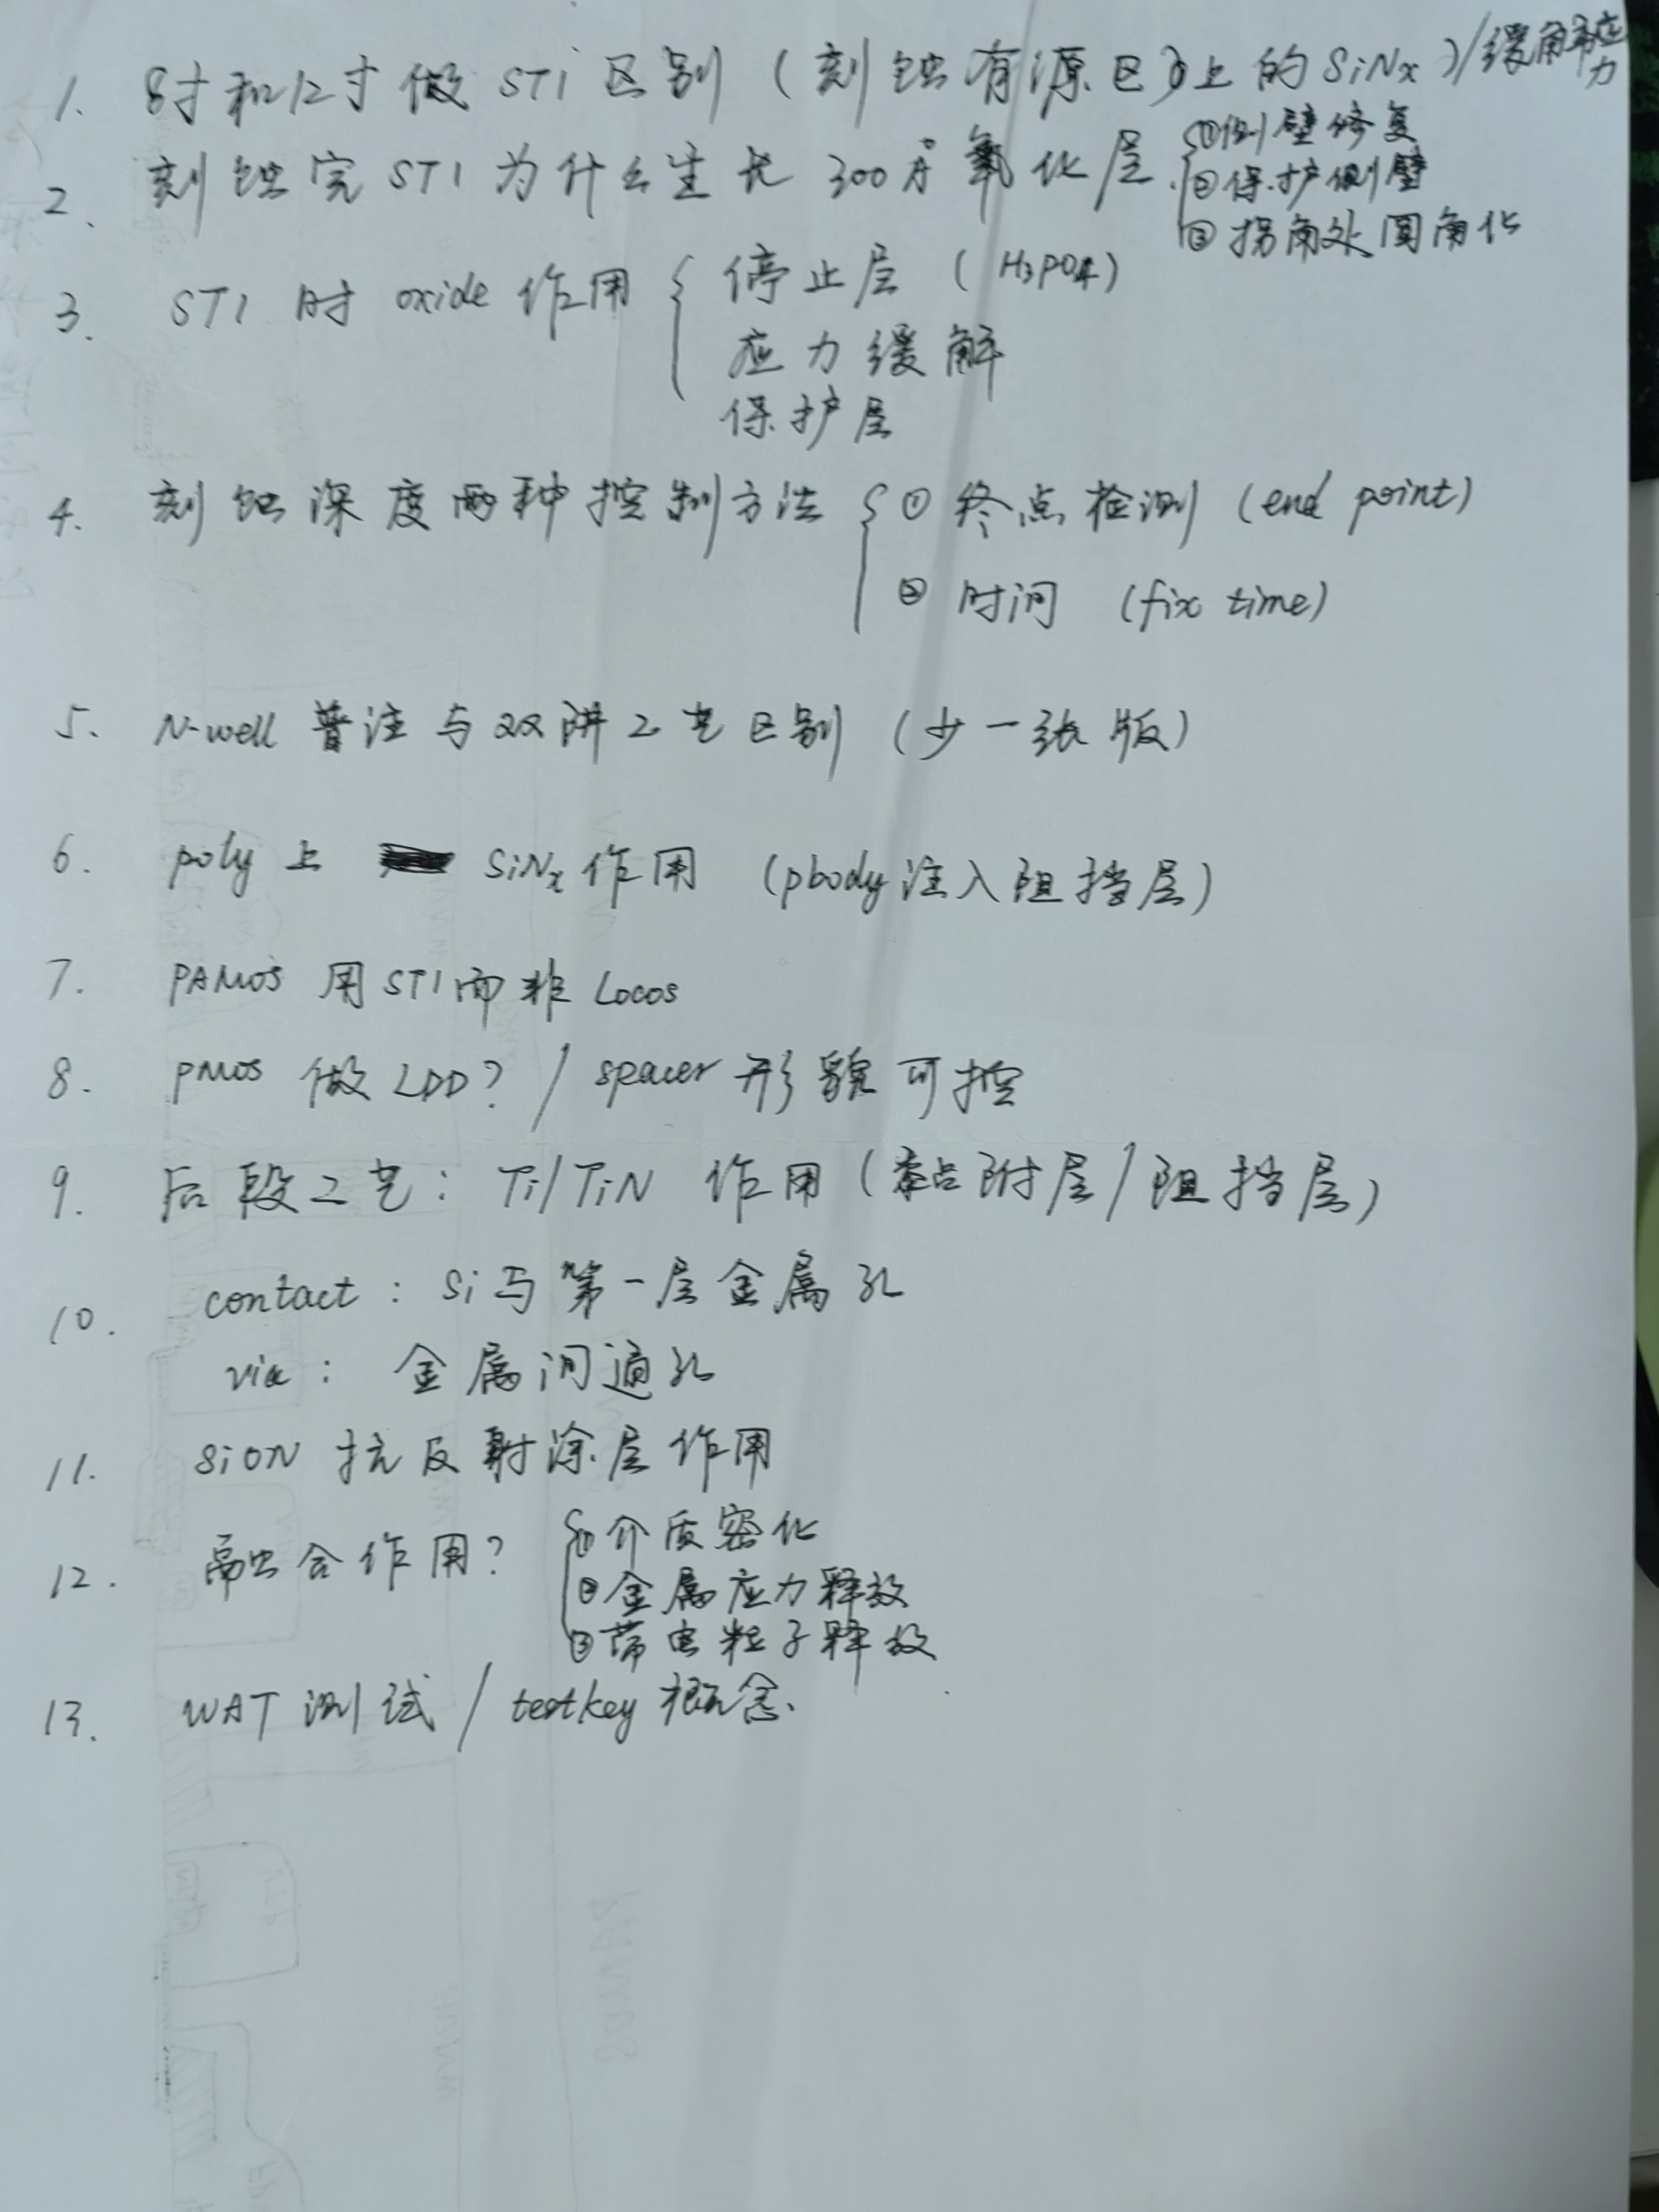 1. 8寸和12寸做STI区别(刻蚀有源区上的SiNx)/缓解应力
2. 刻蚀完STI为什么生长300Å氧化层 ①侧壁修复
②保护侧壁
③拐角处圆角化
3. STI时oxide作用 停止层(H3PO4)
应力缓解
保护层
4. 刻蚀深度两种控制方法 ①终点检测(end point)
②时间(fix time)
5. N-well普注与双阱工艺区别(少一张版)
6. poly上 SiNx作用(pbody注入阻挡层)
7. PAMOS用STI而非Locos
8. PMOS做LDD?/spacer形貌可控
9. 后段工艺:Ti/TiN作用(黏附层/阻挡层)
10. contact:Si与第一层金属孔
via:金属间通孔
11. SiON抗反射涂层作用
12. 融合作用? ①介质密化
②金属应力释放
③带电粒子释放
13. WAT测试/testkey概念.